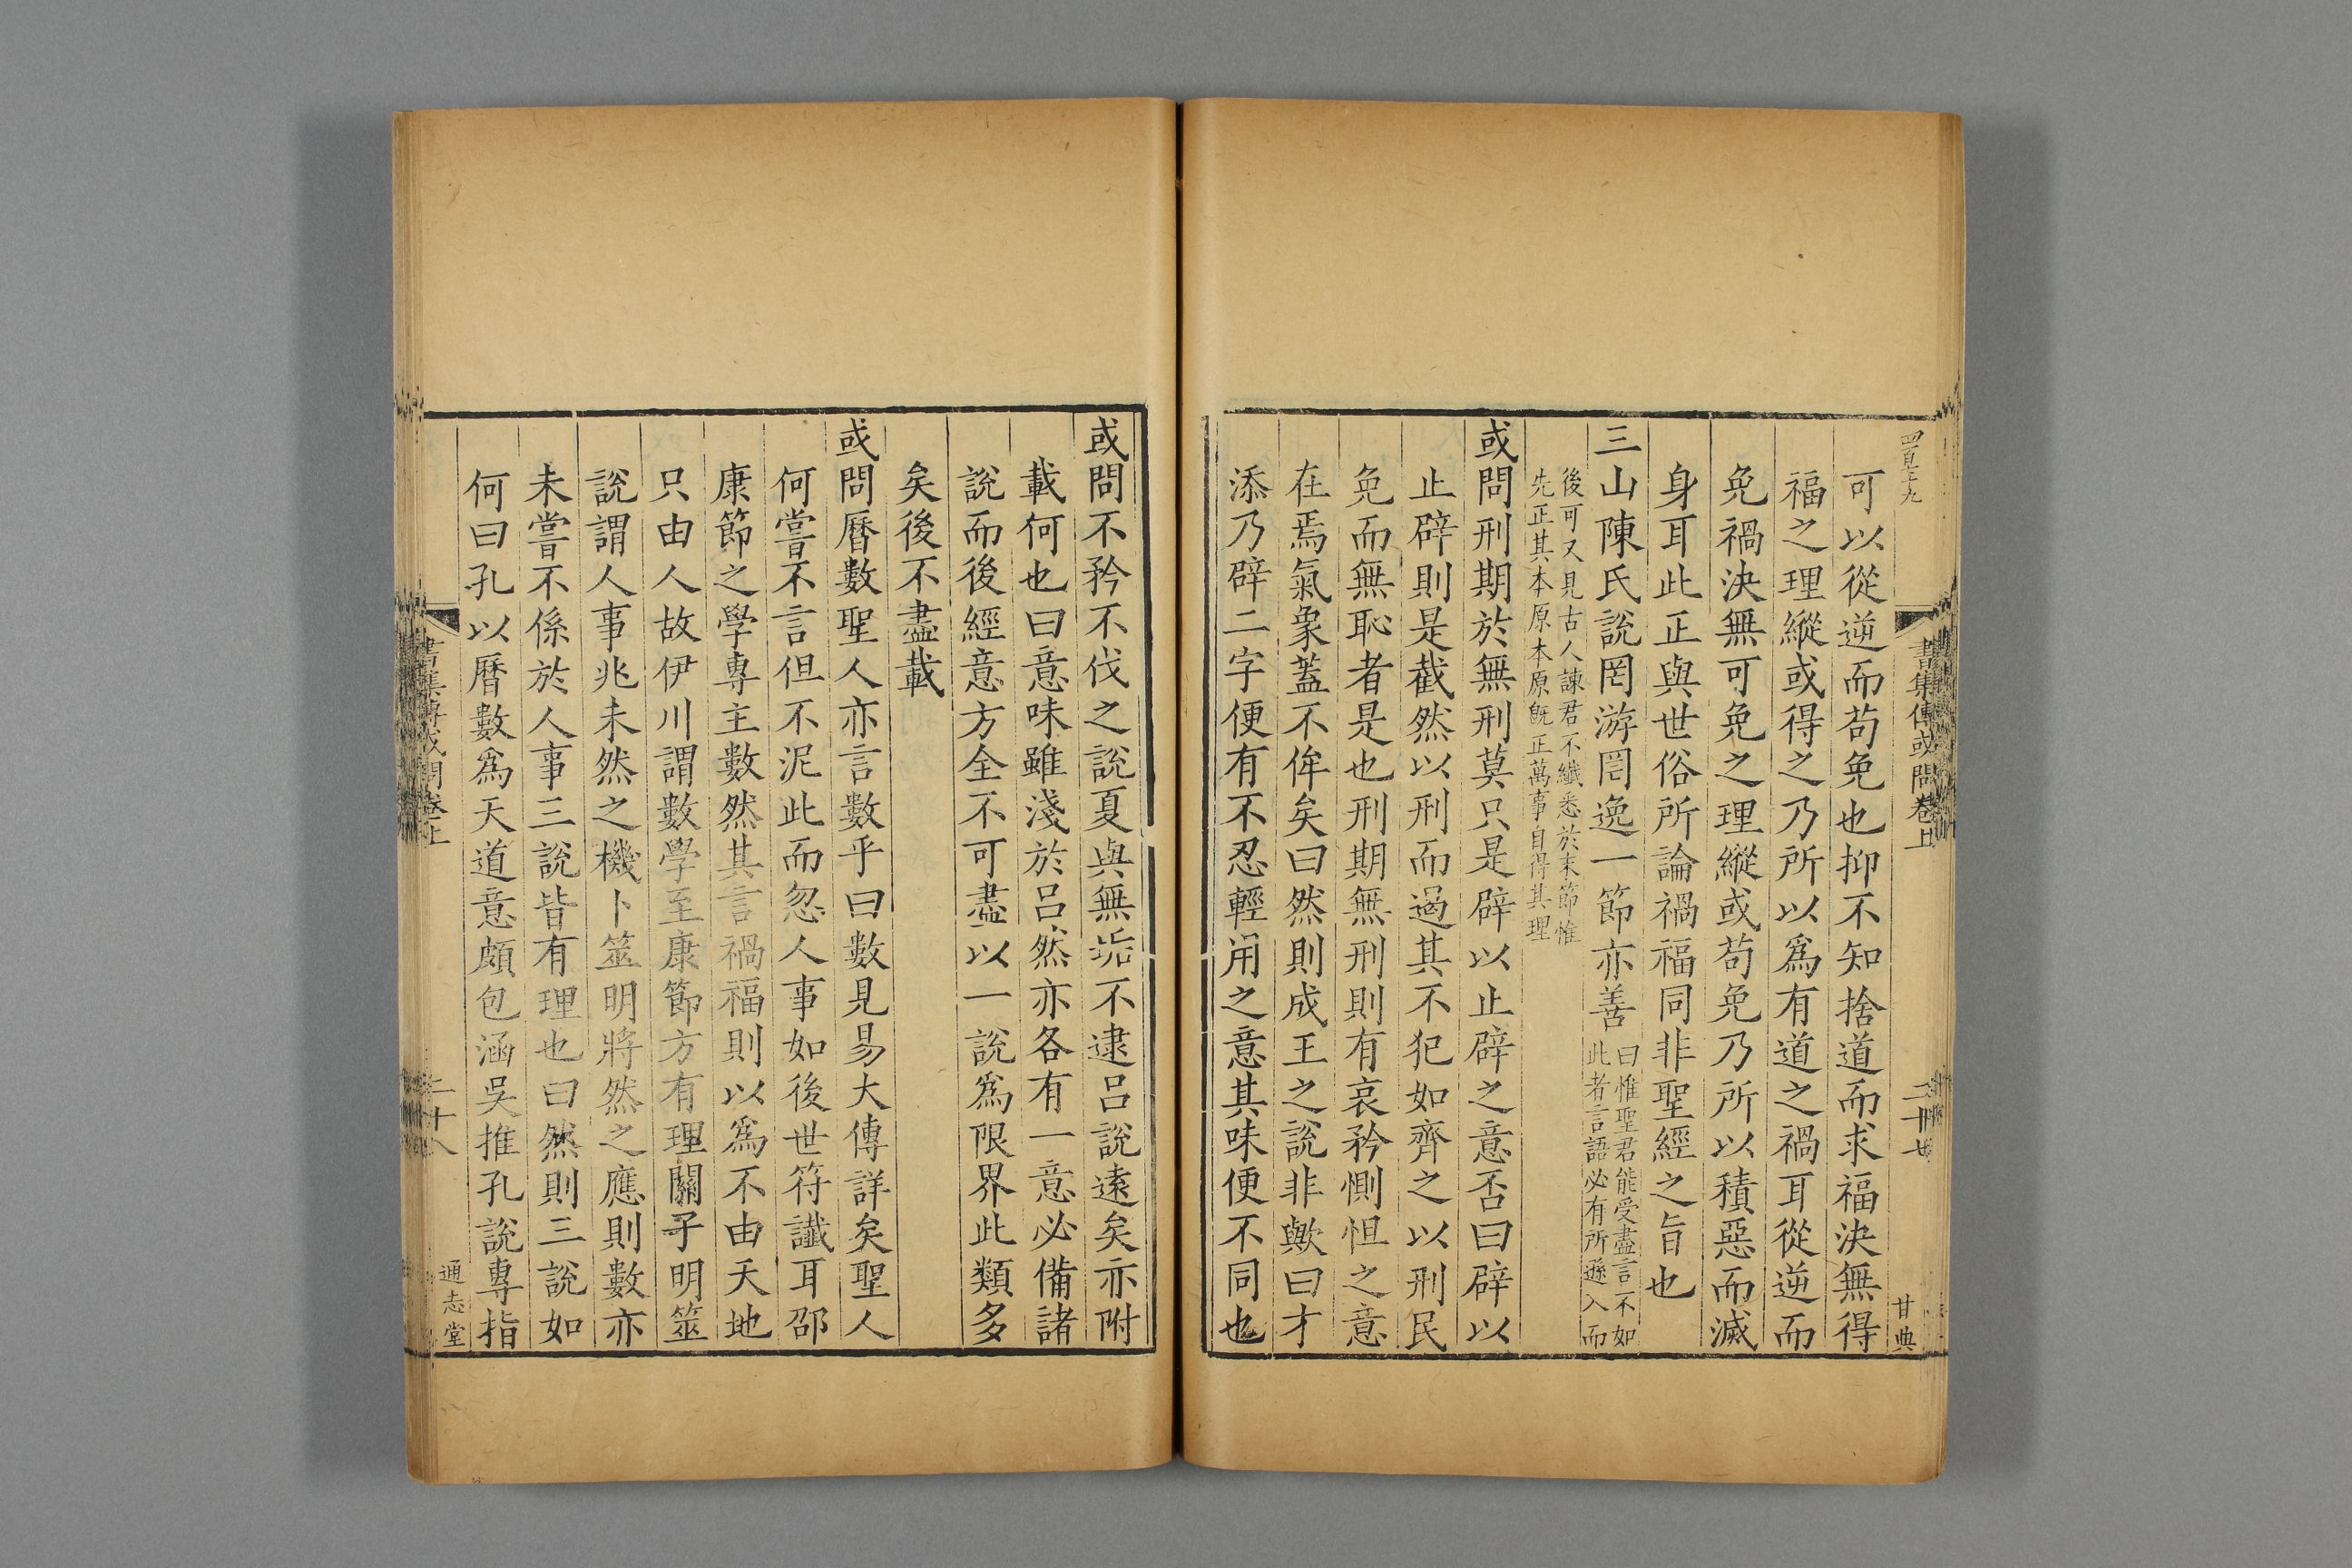 書集傳或問卷上
甘典
可以從逆而苟免也抑不知捨道而求福決無得
福之理縱或得之乃所以爲有道之禍耳從逆而
免禍決無可免之理縱或苟免乃所以積惡而滅
身耳此正與世俗所論禍福同非聖經之旨也
三山陳氏說罔游罔逸一節亦善曰惟聖君能受盡言不如
此者言語必有所遜入而
後可又見古人諫君不纖悉於末節惟
先正其本原本原旣正萬事自得其理
或問刑期於無刑莫只是辟以止辟之意否曰辟以
止辟則是截然以刑而遏其不犯如齊之以刑民
免而無恥者是也刑期無刑則有哀矜惻怛之意
在焉氣象蓋不侔矣曰然則成王之說非歟曰才
添乃辟二字便有不忍輕用之意其味便不同也
或問不矜不伐之說夏與無垢不逮呂說遠矣亦附
載何也曰意味雖淺於呂然亦各有一意必備諸
說而後經意方全不可盡以一說爲限界此類多
矣後不盡載
或問曆數聖人亦言數乎曰數見易大傳詳矣聖人
何嘗不言但不泥此而忽人事如後世符讖耳邵
康節之學專主數然其言禍福則以爲不由天地
只由人故伊川謂數學至康節方有理關子明筮
說謂人事兆未然之機卜筮明將然之應則數亦
未嘗不係於人事三說皆有理也曰然則三說如
何曰孔以曆數爲天道意頗包涵吳推孔說專指
書集傳或問卷上
二十八
通志堂